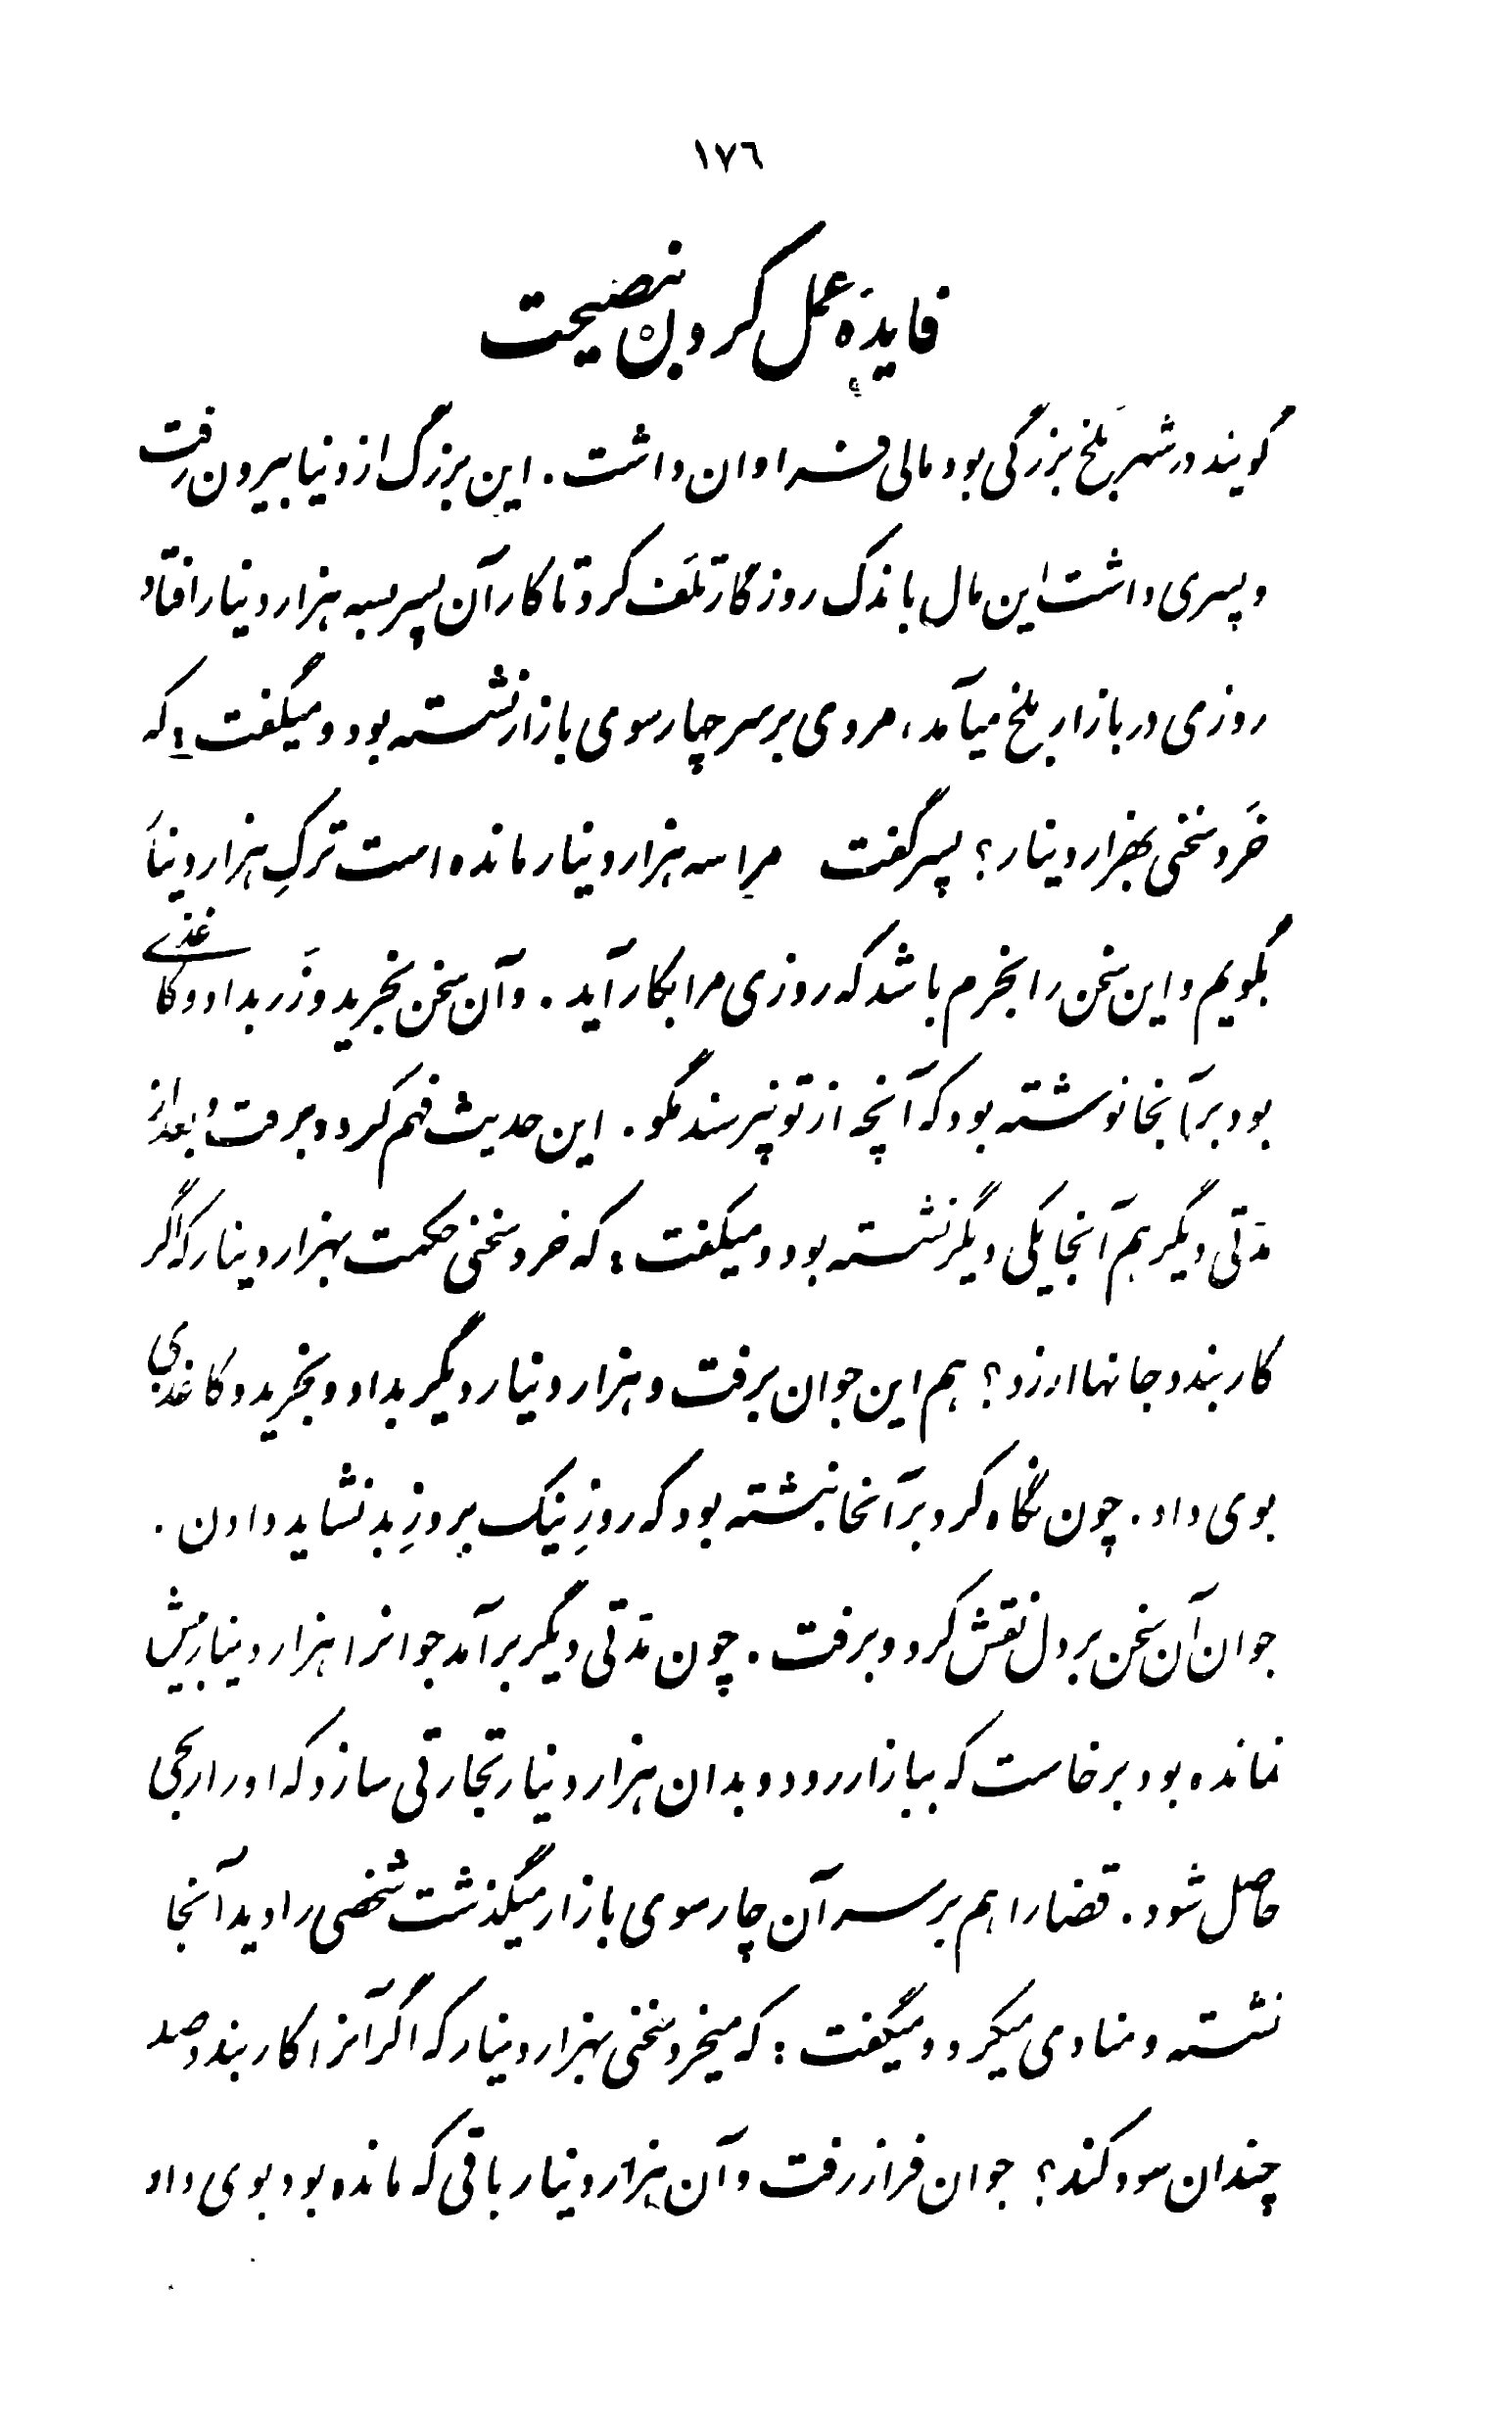 ١٧٦
فایدهٔ عمل کردن بنصیحت
گویند در شهر بَلخ بزرگی بود مالی فراوان داشت . این بزرگ از دنیا بیرون رفت
و پسری داشت این مال باندک روزگار تلَف کرد تا کار آن پسر بسه هزار دینار افتاد
روزی در بازار بلخ میآمد ، مردی بر سر چهارسوی بازار نشسته بود و میگفت : که
خَرد سخنی بهزار دینار ؟ پسر گفت مرا سه هزار دینار مانده است ترکِ هزار دینار
بگویم و این سخن را بخرم باشد که روزی مرا بکار آید . و آن سخن بخرید و زَر بداد و کاغذی
بود برآنجا نوشته بود که آنچه از تو نپرسند مگو . این حدیث فهم کرد و برفت و بعد از
مدّتی دیگر هم آنجا یکی دیگر نشسته بود و میگفت : که خرد سخنی حکمت بهزار دینار که اگر
کار بندد جانها ارزد ؟ هم این جوان برفت و هزار دینار دیگر بداد و بخرید و کاغذی
بوی داد . چون نگاه کرد برآنجا نبشته بود که روزِ نیک بروزِ بد نشاید دادن .
جوان آن سخن بر دل نقش کرد و برفت . چون مدّتی دیگر برآمد جوانرا هزار دینار بیش
نمانده بود برخاست که ببازار رود و بدان هزار دینار تجارتی سازد که او را ربحی
حاصل شود . قضا را هم بر سر آن چارسوی بازار میگذشت شخصی را دید آنجا
نشسته و منادی میکرد و میگفت : که میخرد سخنی بهزار دینار که اگر آنرا کار بندد صد
چندان سود کند ؟ جوان فراز رفت و آن هزار دینار باقی که مانده بود بوی داد